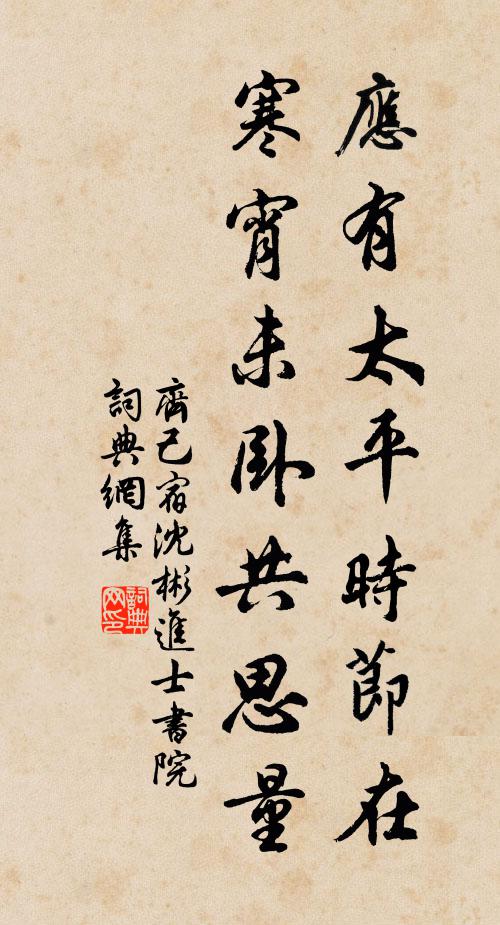 應有太平時節在
寒宵未臥共思量
齊己宿沈彬進士書院
詞典網集
詞典
网印